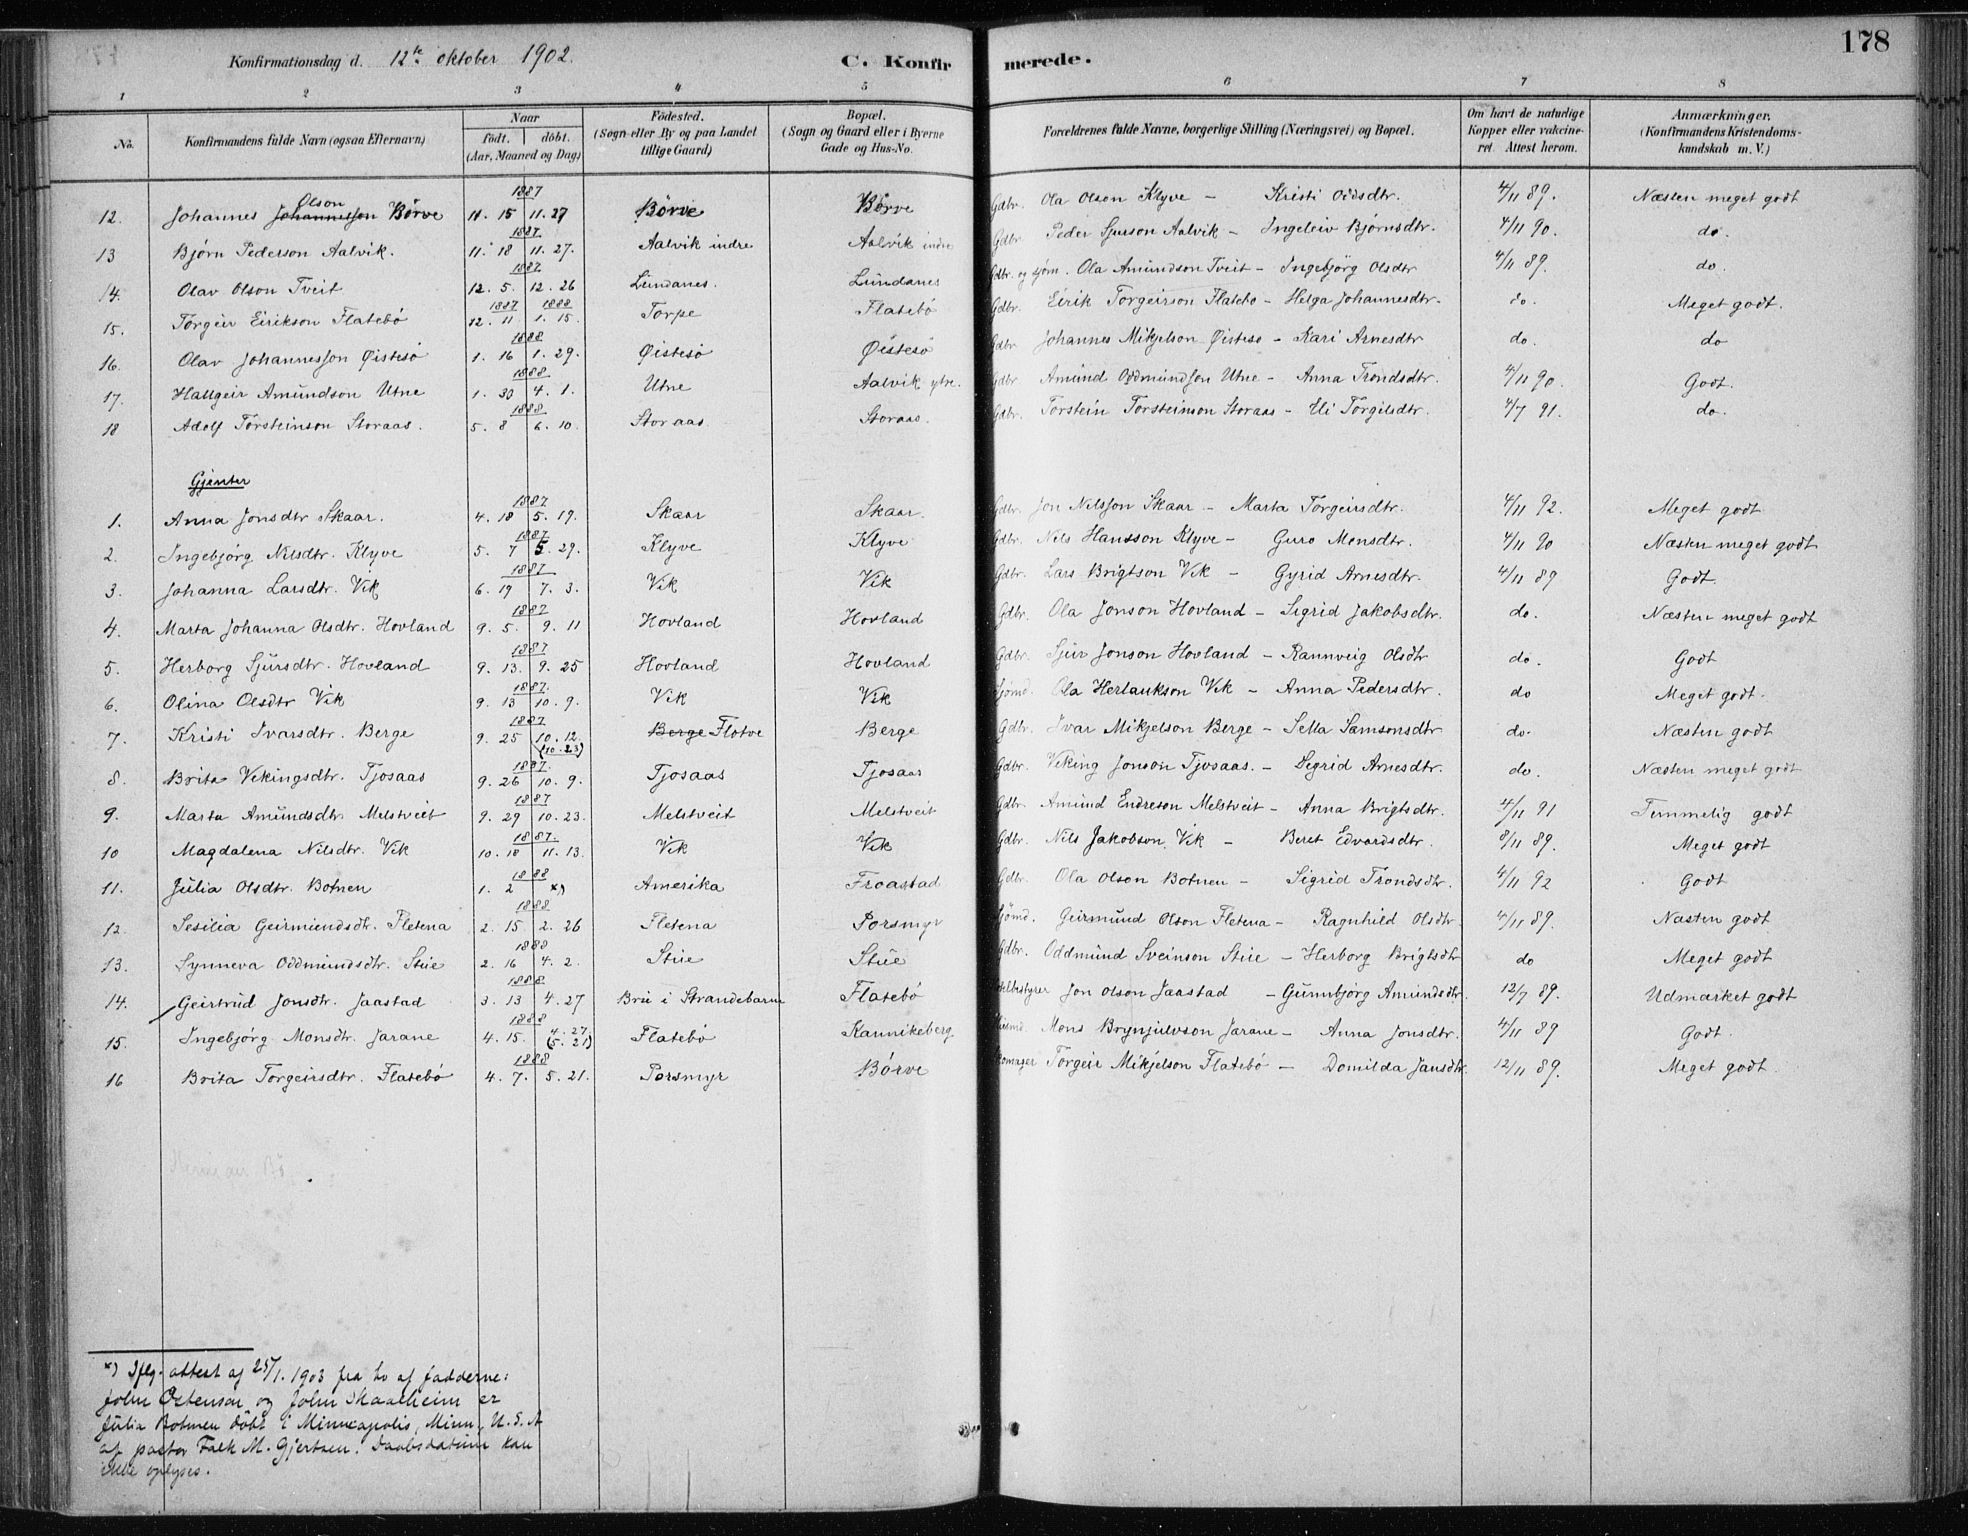 178
Konfirmationsdag d. 12te oktober 1902.
C. Konfirmerede.
1 2 3 4 5 6 7 8
No. Konfirmandens fulde Navn (ogsaa Efternavn) Naar födt. döbt. (Aar, Maaned og Dag) Födested. (Sogn eller By og paa Landet tillige Gaard) Bopæl. (Sogn og Gaard eller i Byerne Gade og Hus-No. Forældrenes fulde Navne, borgerlige Stilling (Næringsvei) og Bopæl. Om havt de naturlige Kopper eller vakcineret. Attest herom. Anmærkninger. (Konfirmandens Kristendomskundskab m. V.)
12. Johannes Johannesson Olson Börve 1887 11. 15 11. 27 Börve Börve Gdbr. Ola Olsen Klyve – Kristi Oddsdtr. 4/11 89. Næsten meget godt
13 Bjørn Pederson Aalvik. 1887 11. 18 11. 27. Aalvik indre Aalvik indre Gdbr. Peder Sjurson Aalvik – Ingeleiv Bjørnsdtr. 4/11 90. do.
14. Olav Olson Tveit 1887 12. 5. 12. 26 Lundanes. Lundanes Gdbr. og sjøm. Ola Amundson Tveit – Ingebjörg Olsdtr 4/11 89. do.
15. Torgeir Eirikson Flatebö 1887 1888 12. 11 1. 15. Torpe Flatebö Gdbr. Eirik Torgeirson Flatebo – Helga Johannesdtr. do Meget godt.
16. Olav Johannesson Øistesö 1888 1. 16 1. 29. Øistesö Øistesö Gdbr Johannes Mikjelson Øisteso – Kari Arnesdtr do. do
17. Hallgeir Amundson Utne 1888 1. 30 4. 1. Utne Aalvik ytre. Gdbr Amund Oddmundson Utne – Anna Trondsdtr. 4/11 90. Godt.
18 Adolf Torsteinson Storaas. 1888 5. 8 6. 10. Storaas Storaas. Gdbr. Torstein Torsteinson Storaas – Eli Torgilsdtr. 4/7 91. do.
Gjenter
1. Anna Jonsdtr Skaar. 1887 4. 18 5. 19. Skaar Skaar. Gdbr. Jon Nilsson Skaar – Marta Torgeirsdtr. 4/11 92. Meget godt
2. Ingebjörg Nilsdtr. Klyve 1887 5. 7 5. 29. Klyve Klyve Gdbr. Nils Hansson Klyve – Guro Monsdtr. 4/11 90 Næsten meget godt
3. Johanna Larsdtr. Vik 1887 6. 19 7. 3. Vik Vik Gdbr. Lars Brigtson Vik – Gyrid Arnesdtr. 4/11 89 Godt.
4. Marta Johanna Olsdtr. Hovland 1887 9. 5. 9. 11 Hovland Hovland Gdbr. Ola Jonson Hovland – Sigrid Jakobsdtr. do. Næsten meget godt
5. Herborg Sjursdtr. Hovland 1887 9. 13. 9. 25 Hovland Hovland Gdbr. Sjur Jonson Hovland – Rannveig Olsdtr do. Godt
6. Olina Olsdtr Vik 1887. 9. 13 10. 9. Vik Vik Sjömd. Ola Herlaukson Vik – Anna Pedersdtr. do Meget godt.
7. Kristi Ivarsdtr. Berge 1887 9. 25 10. 12. (10. 23) Berge Flotve Berge Gdbr. Ivar Mikjelson Berge – Sella Samsonsdtr do. Næsten godt
8. Brita Vikingsdtr. Tjosaas 1887. 9. 26 10. 9. Tjosaas Tjosaas Gdbr. Viking Jonson Tjosaas. – Sigrid Arnesdtr. do. Næsten meget godt
9. Marta Amundsdtr Melstveit 1887 9. 29 10. 23. Melstveit Melstveit Gdbr. Amund Endreson Melstveit – Anna Brigtsdtr. 4/11 91 Temmelig godt
10 Magdalena Nilsdtr. Vik 1887. 10. 18 11. 13. Vik Vik Gdbr. Nils Jakobson Vik – Beret Edvardsdtr. 8/11 89. Meget godt
11. Julia Olsdtr. Botnen 1888 1. 2 *) Amerika Froastad Gdbr. Ola Olson Botnen – Sigrid Trondsdtr. 4/11 92 Godt
12. Sesilia Geirmundsdtr. Fletena 1888 2. 15 2. 26 Fletena Porsmyr Sjömd. Geirmund Olson Fletena – Ragnhild Olsdtr. 4/11 89. Næsten godt
13. Synneva Oddmundsdtr. Stue 1888 2. 16 4. 2. Stue Stue Gdbr. Oddmund Sveinson Stue – Herborg Brigtsdtr do Meget godt
14. Geirtrud Jonsdtr. Jaastad 1888 3. 13 4. 27 Brie i Strandebarm Flatebö Jon Olson Jaastad – Gunnbjørg Amundsdtr. 12/7 89. Udmærket godt
15. Ingebjörg Monsdtr. Jarane 1888 4. 15. 4. 27 (5. 21) Flatebö Kannikeberg Mons Brynjulvson Jarane – Anna Jonsdtr. 4/11 89 Godt.
16 Brita Torgeirsdtr. Flatebö 1888 4. 7. 5. 21. Porsmyr Börve Skomager Torgeir Mikjelson Flatebö – Domilda Jansdtr. 12/11 89. Meget godt.
*) Iflg. attest af 25/1. 1903 fra to af fadderne:
John Ostenson og John Skaarheim er
Julia Botnen döbt i Minneapolis, Minn., U. S. A
af pastor Falk M. Gjertsen. Daabsdatum kan
ikke oplyses.